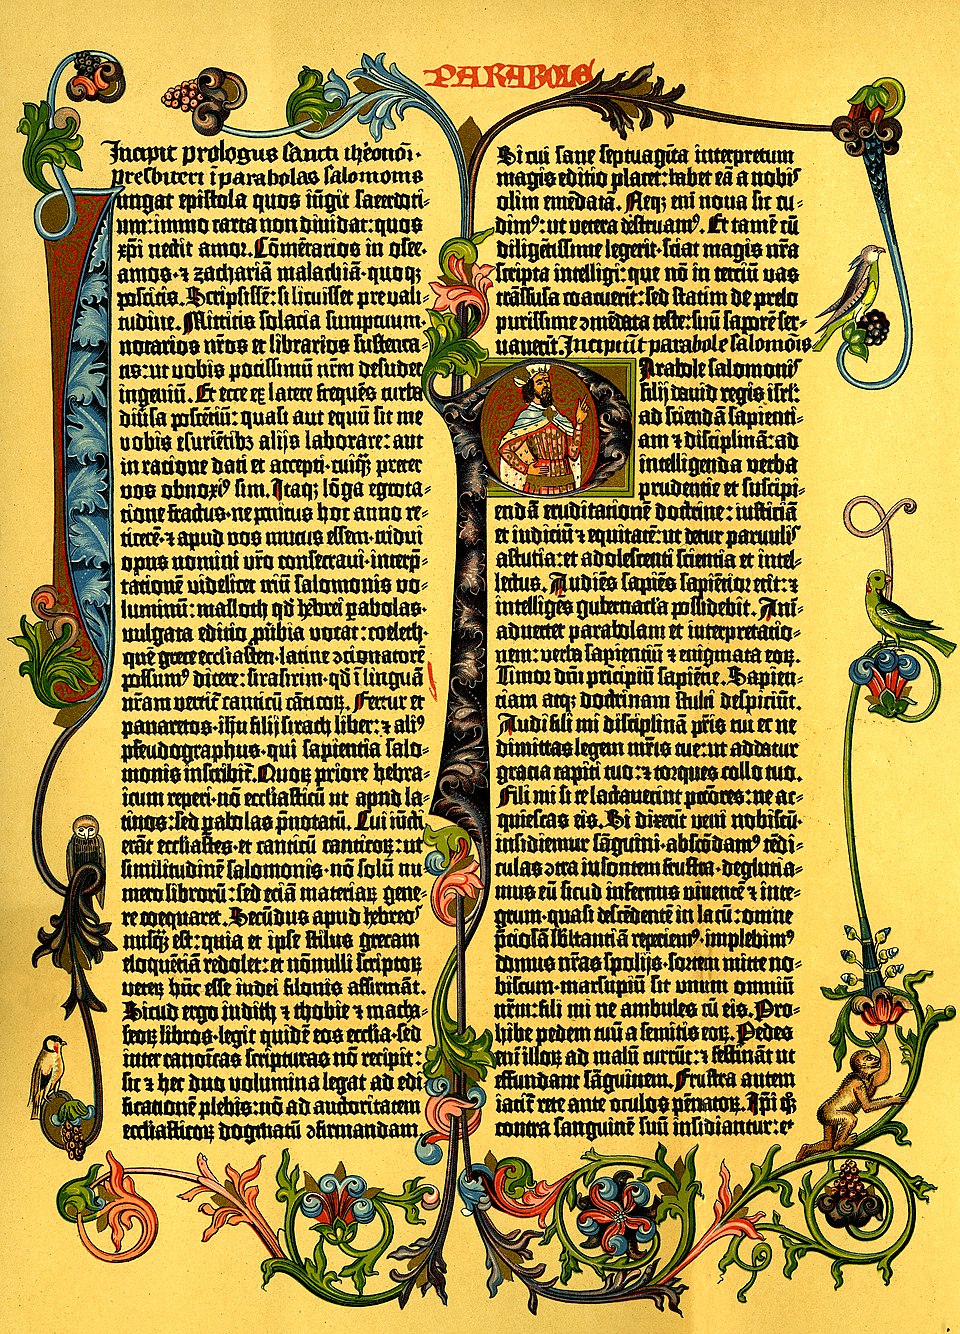 PARABOLE
Incipit prologus sancti iheronimi
presbiteri ī parabolas salomonis
Iungat epistola quos iūgit sacerdoti-
um: immo carta non dividat: quos
xp̄i nectit amor. Cōmētarios in osee.
amos. ⁊ zachariā malachiā. quoqꝫ
poscitis. Scripsissē: si licuisset pre vali-
tudine. Mittitis solacia sumptuum.
notarios nr̄os et librarios sustenta-
tis: ut vobis potissimū nr̄m desudet
ingeniū. Et ecce ex latere frequēs turba
diūsa poscētiū: quasi aut equū sit me
vobis esuriētibꝫ alijs laborare: aut
in ratione dati et accepti. cuiq̄ꝫ preter
vos obnoxiꝰ sim. Itaqꝫ lōga egrota-
tione fractus. ne penitus hoc anno re-
ticerē. ⁊ apud vos mutus essem. tridui
opus nomini vr̄o consecravi. interp̄-
tationē videlicet triū salomonis vo-
luminū: masloth qd̄ hebrei pabolas.
vulgata editio pūbia vocat: coeleth.
quē grece ecclīasten. latine ↄcionatorē
possumꝰ dicere: sirasirim. qd̄ ī linguā
nr̄am vertit̄ canticū cāticoꝝ. Fertur et
panaretos. ihū filij sirach liber: ⁊ aliꝰ
pseudographus. qui sapientia salo-
monis inscribit̄. Quoꝝ priorē hebra-
icum reperi. nō ecclīasticū ut apud la-
tinos: sed pabolas p̄notatū. Cui iūcti
erāt ecclīastes. et canticū canticoꝝ: ut
similitudinē salomonis. nō solū nu-
mero librorū: sed etiā materiaꝝ gene-
re coequaret. Secūdus apud hebreos
nusq̄ꝫ est: quia et ipse stilus grecam
eloquētiā redolet: et nōnulli scriptoꝝ
veteꝝ hūc esse iudei filonis affirmāt.
Sicud ergo iudith ⁊ thobie ⁊ macha-
beoꝝ libros. legit quidē eos eccl̄ia. sed
inter canonicas scripturas nō recipit:
sic ⁊ hec duo volumina legat ad edi-
ficationē plebis: nō ad auctoritatem
ecclīasticoꝝ dogmatū ↄfirmandam.
Si cui sane septuagīta interpretum
magis editio placet: habet eā a nobis
olim emēdatā. Neqꝫ eni nova sic cu-
dimꝰ: ut vetera dēstruamꝰ. Et tamē cū
diligētissime legerit. sciat magis nr̄a
scripta intelligi: que nō in terciū vas
trāsfusa coacuerīt: sed statim de prelo
purissime ↄmēdata teste: suū saporē ser-
vaverīt. Incipiūt parabole salomōis
Parabole salomonis
filij david regis isrl̄:
ad sciendā sapienti-
am ⁊ disciplinā: ad
intelligenda verba
prudentie et suscipi-
endā eruditationē doctrine: iusticiā
et iudiciū ⁊ equitatē: ut detur parvulis
astutia: et adolescenti scientia et intel-
lectus. Audiēs sapiēs sapiētior erit: ⁊
intelligēs gubernacl̄a possidebit. Ani-
advertet parabolam et interpretatio-
nem: verba sapientiū ⁊ enigmata eoꝝ.
Timor dn̄i pricipiū sapiētie. Sapien-
ciam atqꝫ doctrinam stulti despiciūt.
Audi fili mi disciplinā pr̄is tui et ne
dimittas legem mr̄is tue: ut addatur
gracia capiti tuo: ⁊ torques collo tuo.
Fili mi si te lactaverint pccōres: ne ac-
quiescas eis. Si dixerīt veni nobiscū.
insidiemur sāguini. abscōdamꝰ tēdi-
culas ↄtra insontem frustra. deglucia-
mus eū sicud infernus viventē ⁊ inte-
grum. quasi descēdentē in lacū: omnē
p̄ciosā sb̄stantiā repriemꝰ. implebimꝰ
domus nr̄as spolijs. sortem mitte no-
biscum. marsupiū sit unum omniū
nr̄m: fili mi ne ambules cū eis. Pro-
hibe pedem tuū a semitis eoꝝ. Pedes
enī illoꝝ ad malū currūt: ⁊ festināt ut
effundant sāguinem. Frustra autem
iacit̄ rete ante oculos pēnatoꝝ. Ip̄i q̄ꝫ
contra sanguinē suū insidiantur: et